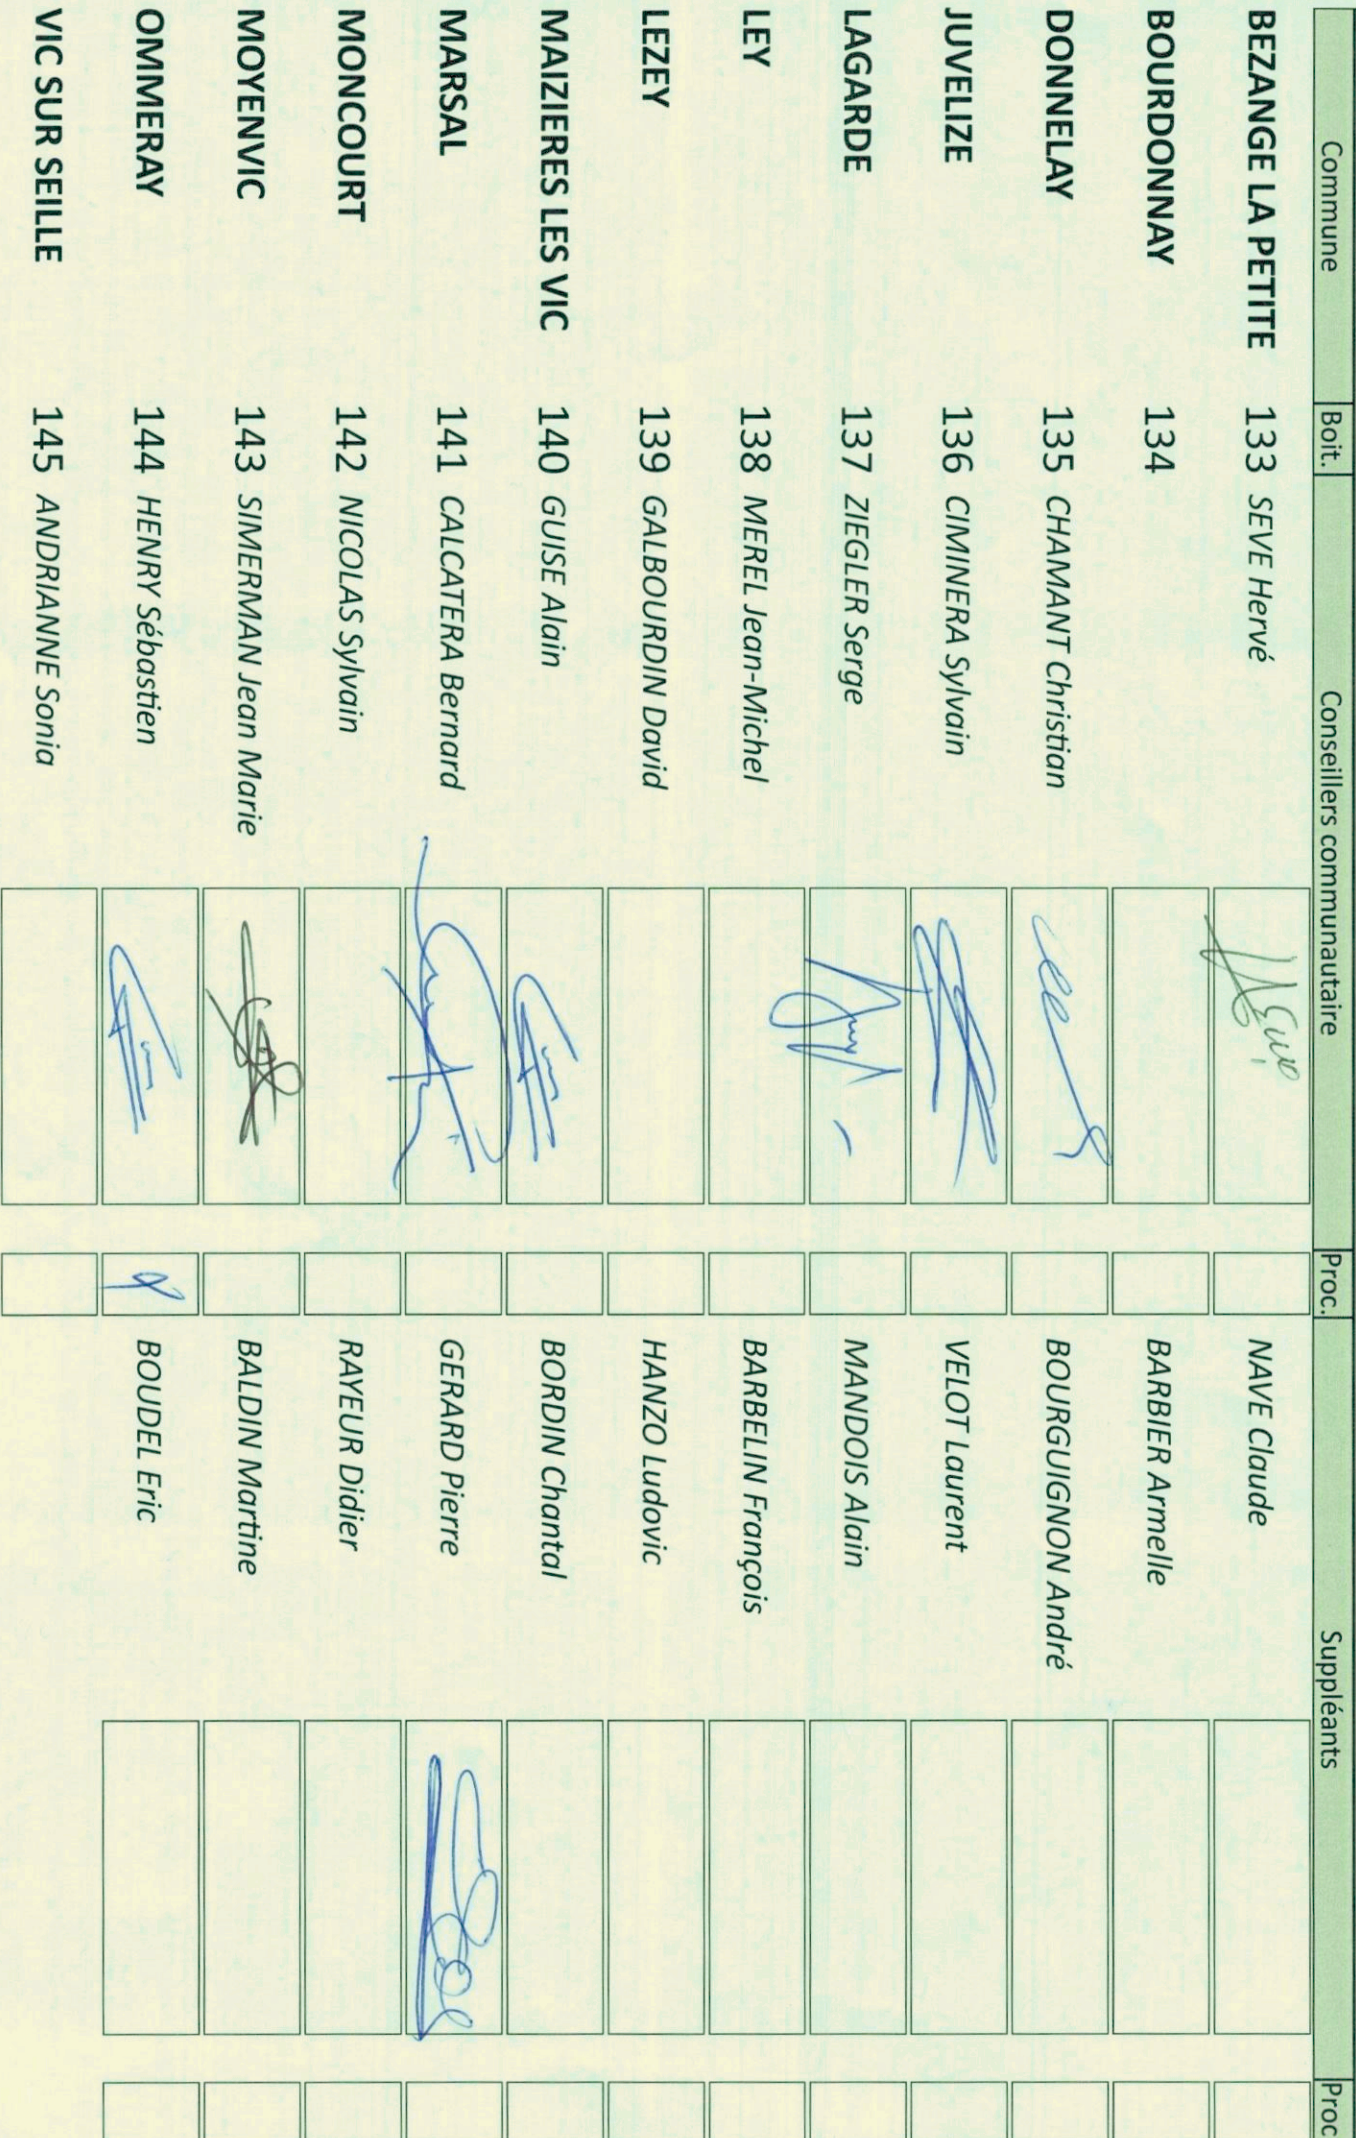 Commune Boit. Conseillers communautaire Proc. Suppléants Proc
BEZANGE LA PETITE 133 SEVE Hervé NAVE Claude
BOURDONNAY 134 BARBIER Armelle
DONNELAY 135 CHAMANT Christian BOURGUIGNON André
JUVELIZE 136 CIMINERA Sylvain VELOT Laurent
LAGARDE 137 ZIEGLER Serge MANDOIS Alain
LEY 138 MEREL Jean-Michel BARBELIN François
LEZEY 139 GALBOURDIN David HANZO Ludovic
MAIZIERES LES VIC 140 GUISE Alain BORDIN Chantal
MARSAL 141 CALCATERA Bernard GERARD Pierre
MONCOURT 142 NICOLAS Sylvain RAYEUR Didier
MOYENVIC 143 SIMERMAN Jean Marie BALDIN Martine
OMMERAY 144 HENRY Sébastien BOUDEL Eric
VIC SUR SEILLE 145 ANDRIANNE Sonia